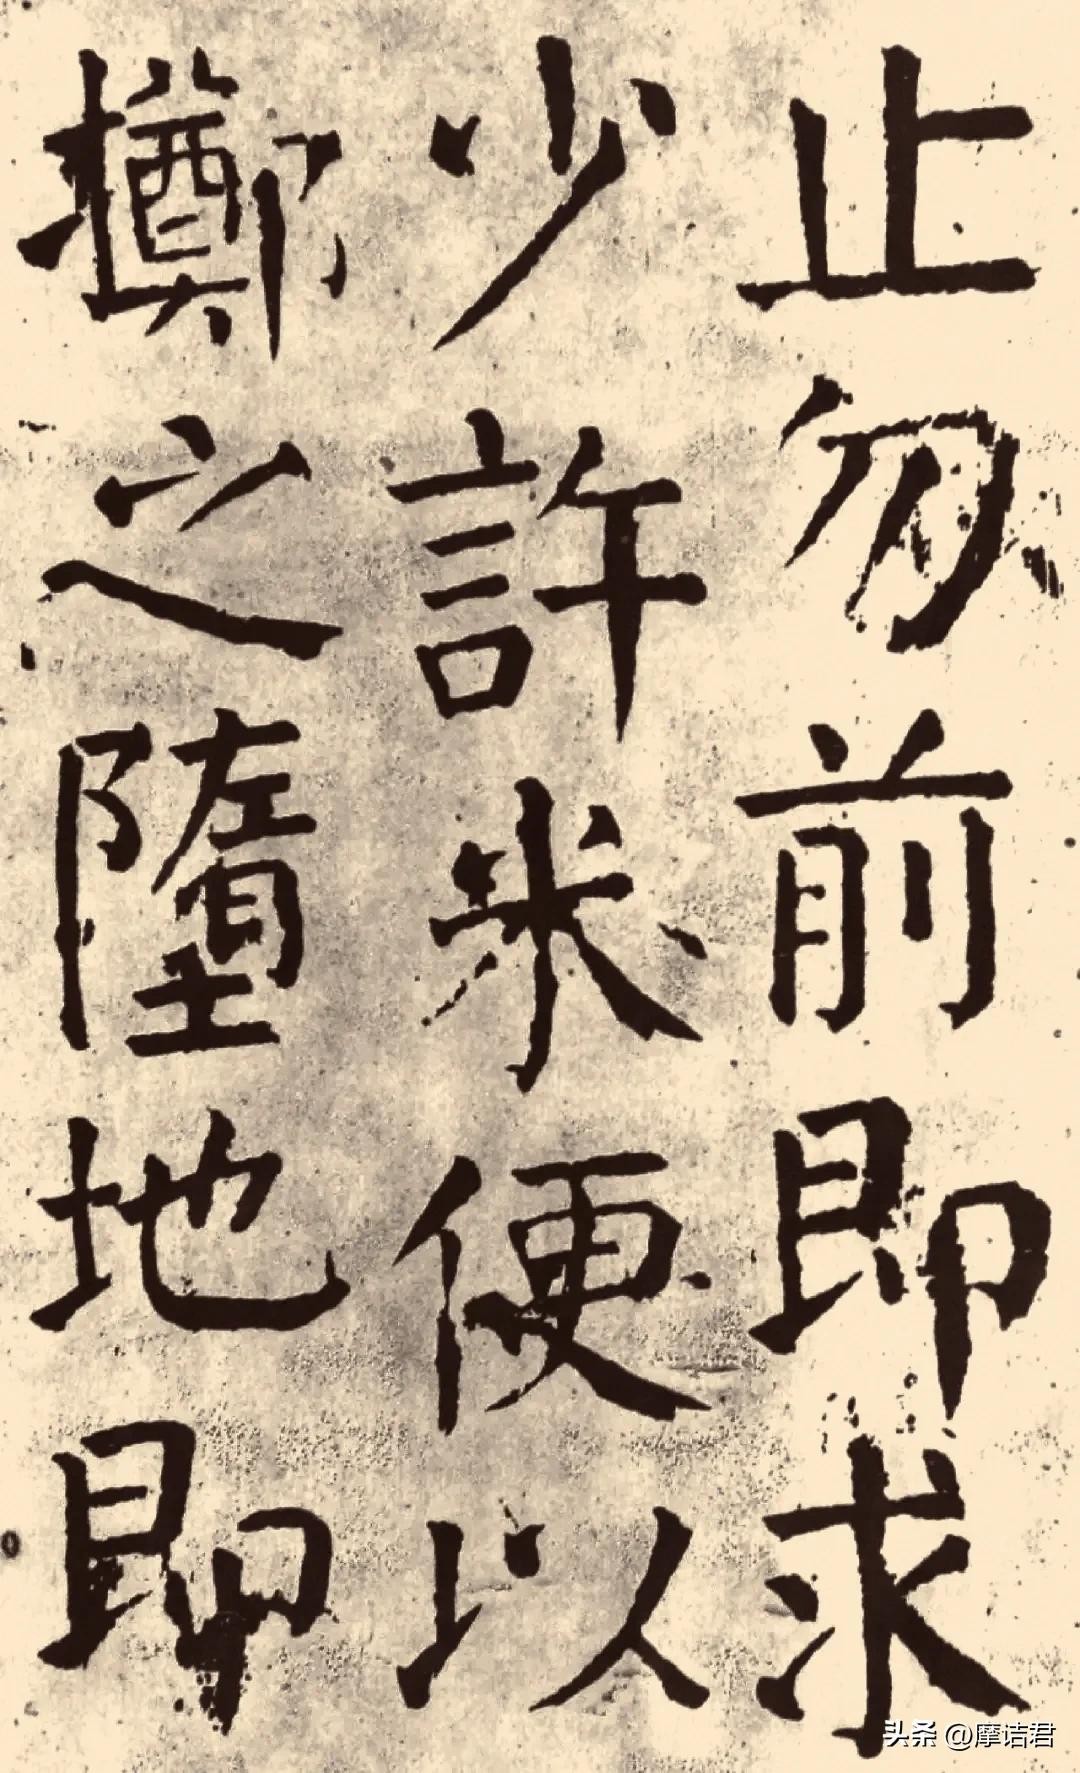 止勿前即求
少許米便以
擲之墮地即
头条 @摩诘君